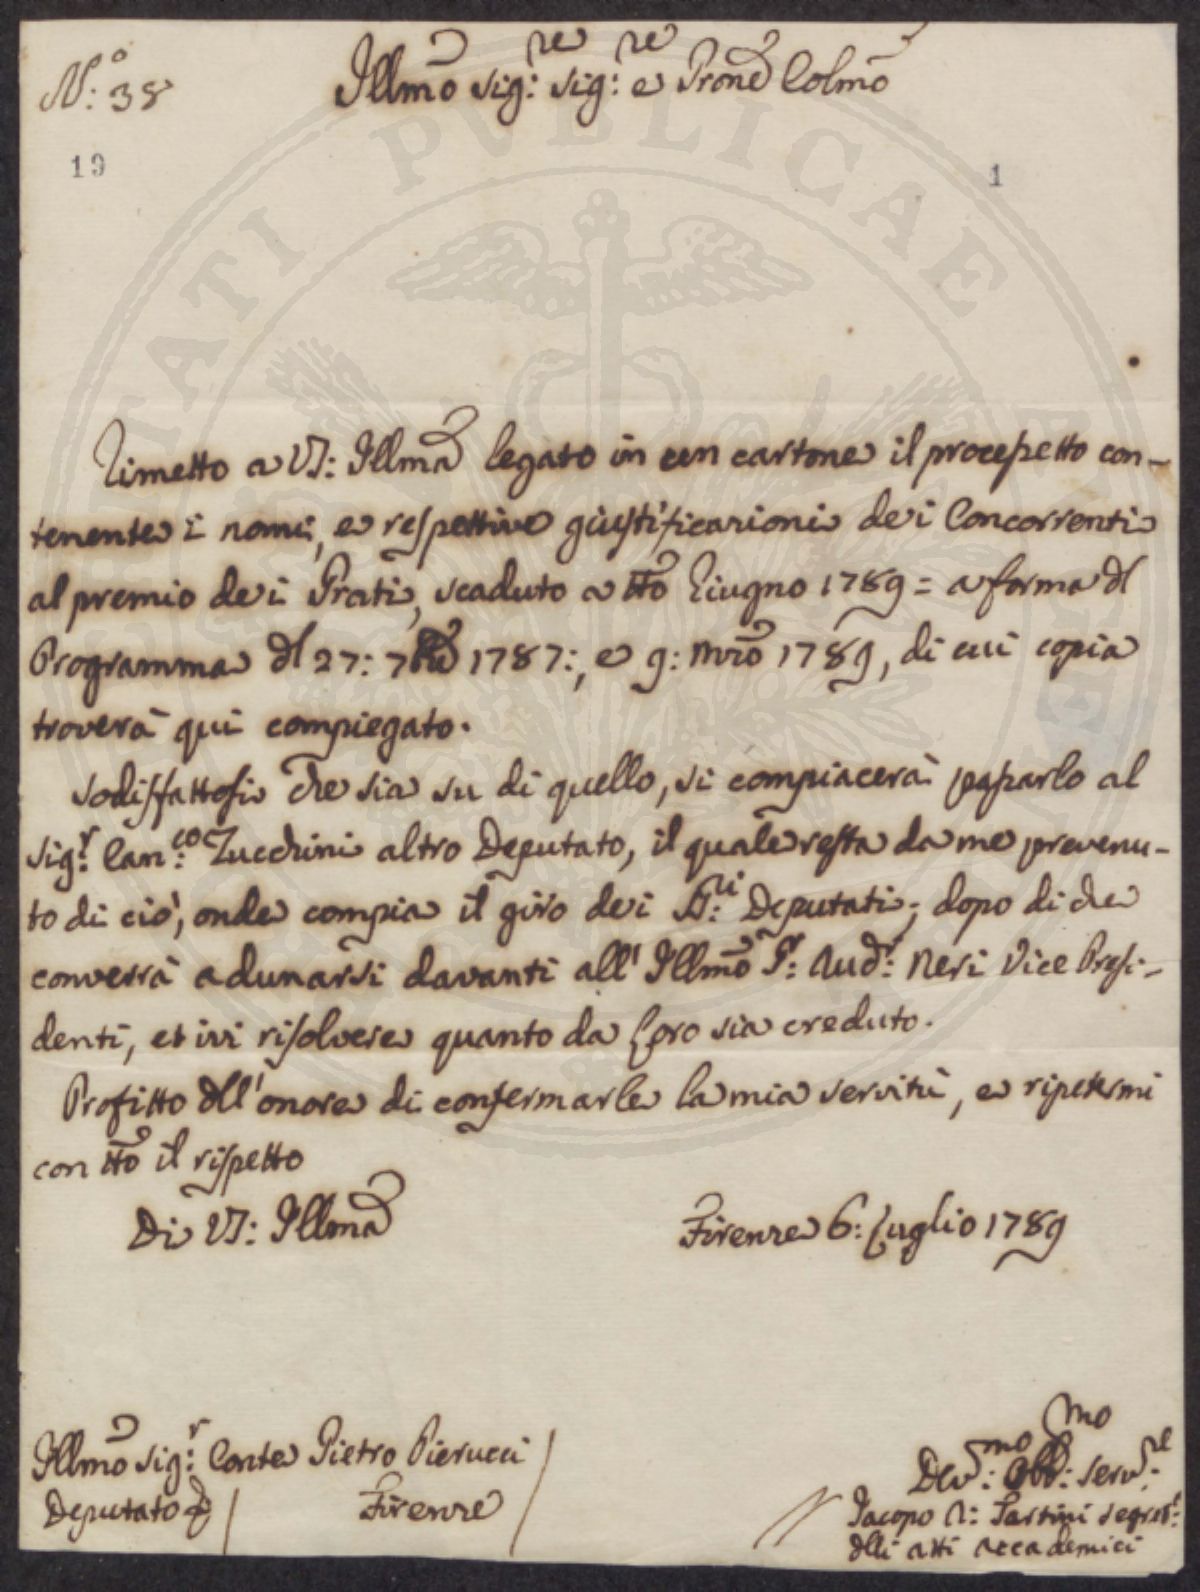 N.° 38
Illmo Sig:re Sig:re e Prone Colmo
19
1
Rimetto a VS: Illma legato in un cartone il prospetto con-
tenente i nomi, e respettive giustificazioni dei Concorrenti
al premio dei Prati, scaduto a tto Giugno 1789 = a forma del
Programma del 27: 7bre 1787:, e 9: Mrzo 1789, di cui copia
troverà qui compiegato.
Sodisfattosi che sia su di quello, si compiacerà passarlo al
Sig:r Can:co Zucchini altro Deputato, il quale resta da me prevenu-
to di ciò, onde compia il giro dei SS:ri Deputati; dopo di che
converrà adunarsi davanti all' Illmo Sr: Audr: Neri Vice Presi-
denti, et ivi risolvere quanto da Loro sia creduto.
Profitto dell'onore di confermarle la mia servitù, e ripetermi
con tto il rispetto
Di VS: Illma
Firenze 6: Luglio 1789
Illmo Sig:r Conte Pietro Pierucci
Deputato
Firenze
Dev:mo Obb:mo Serv:re
Jacopo A: Tartini Segret:
delli atti Accademici
PVBLICAE